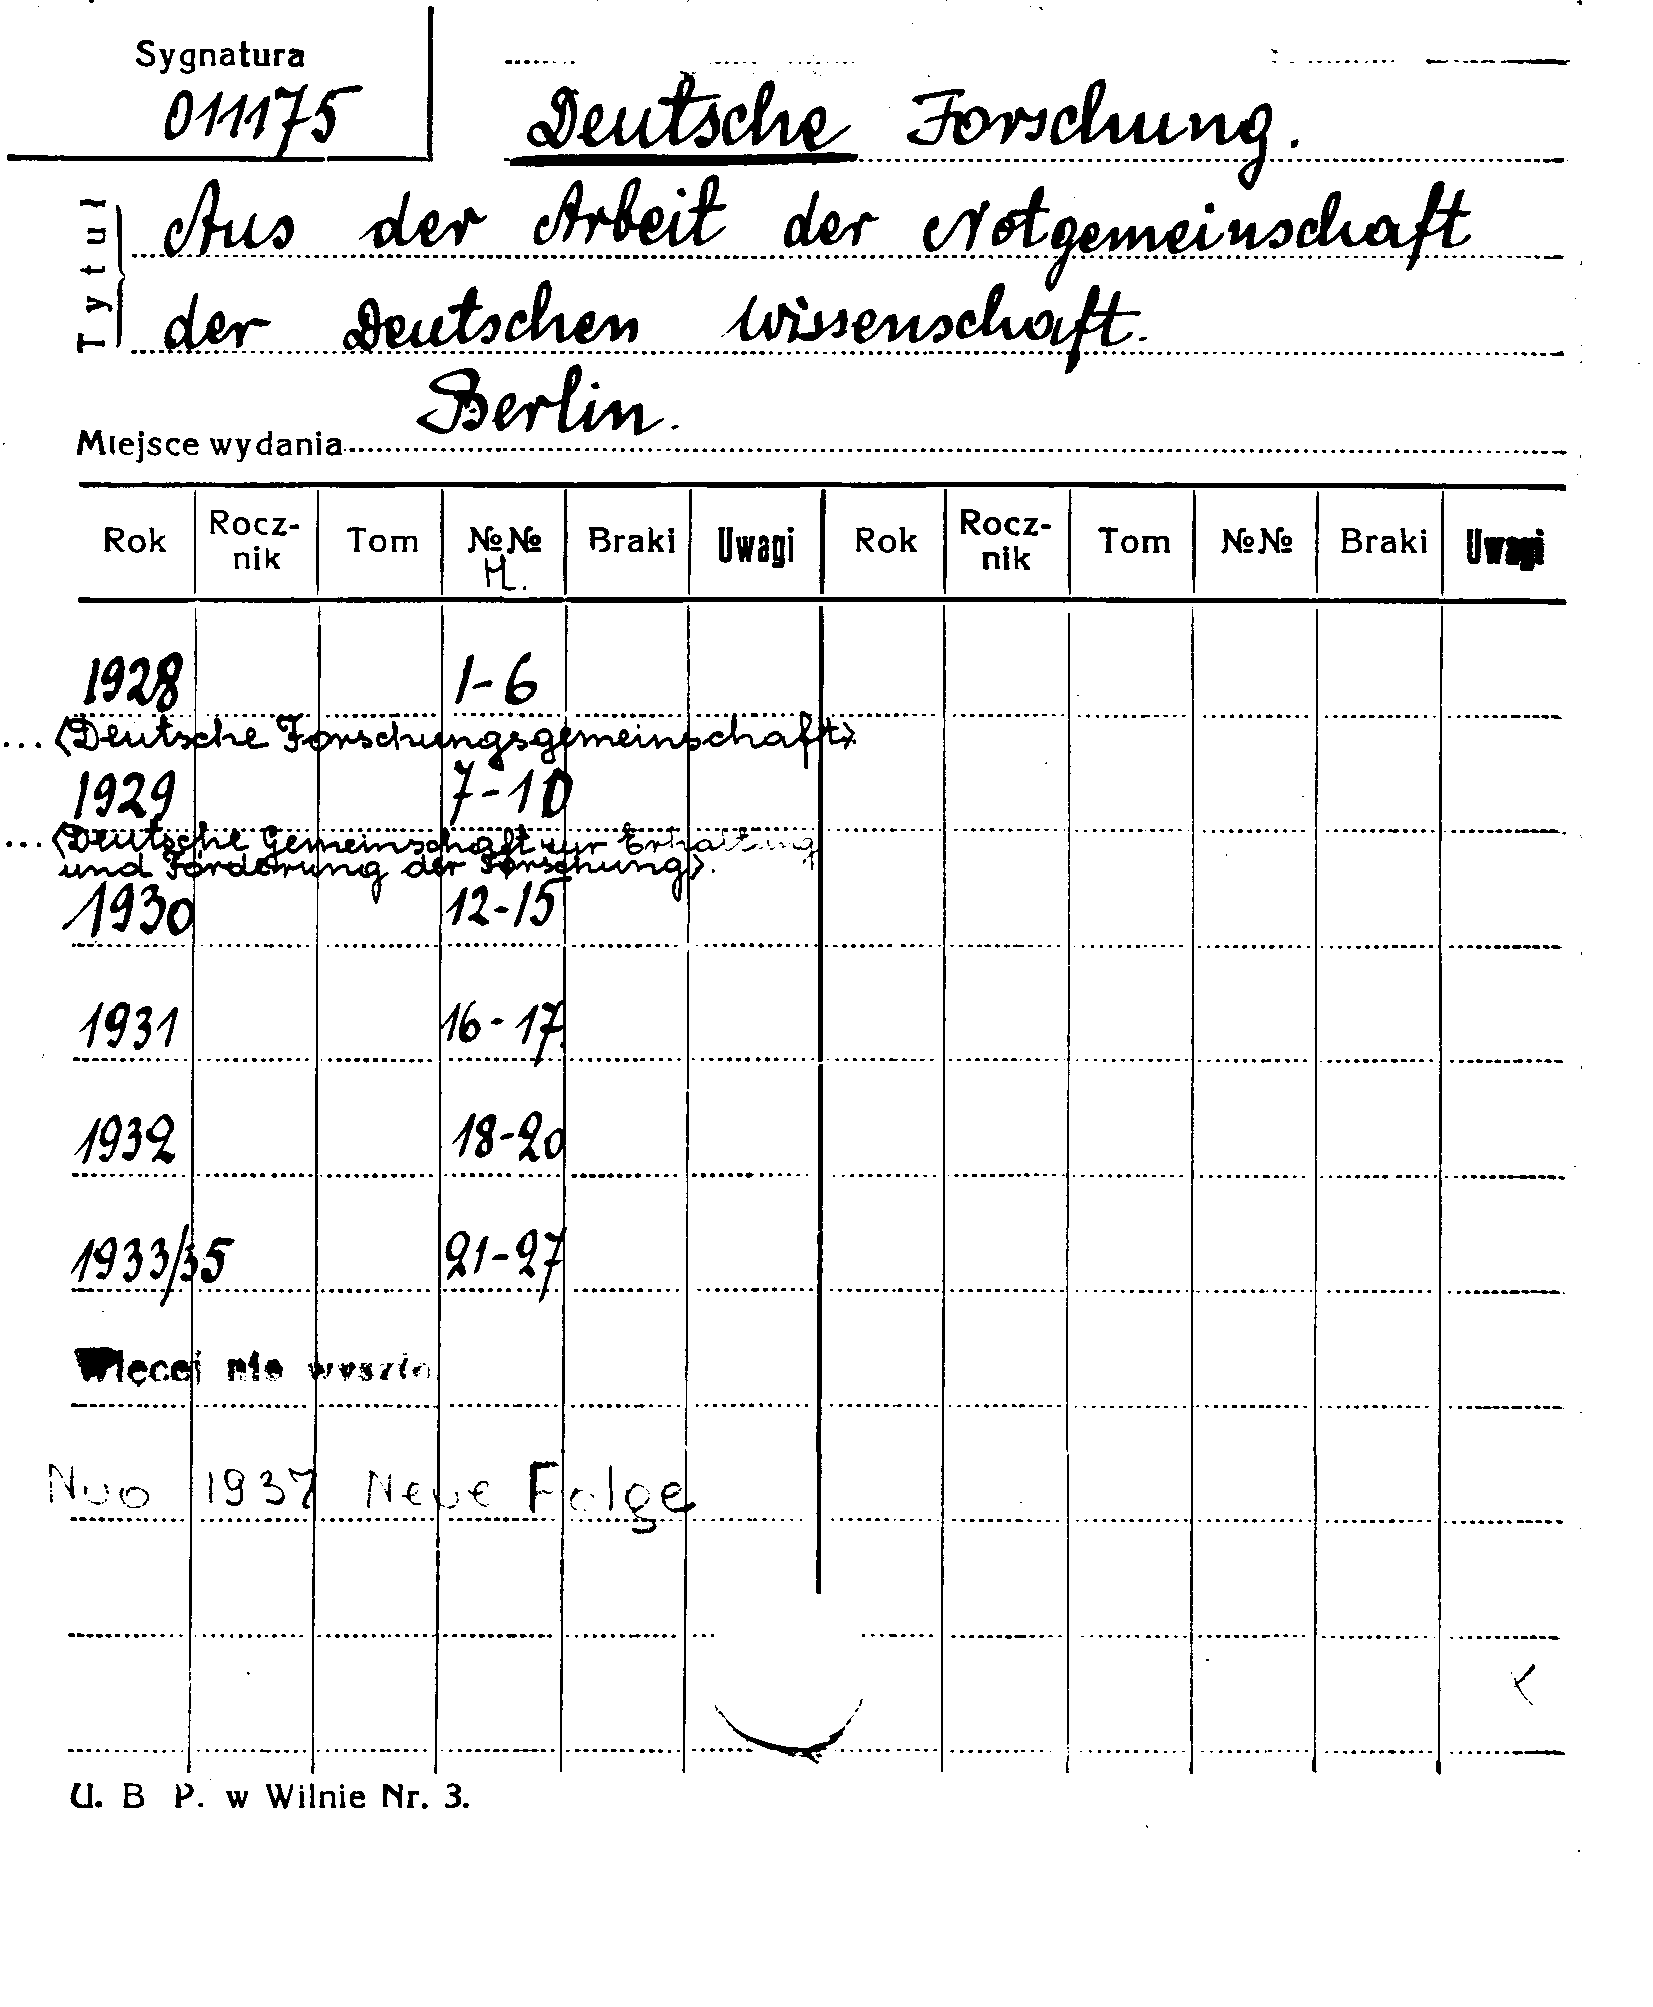 Sygnatura
011175
Deutsche Forschung.
Tytuł
Aus der Arbeit der Notgemeinschaft
der Deutschen Wissenschaft.
Berlin.
Miejsce wydania
Rok Rocz-nik Tom №№ Braki Uwagi Rok Rocz-nik Tom №№ Braki Uwagi
H.
1928 1-6
... (Deutsche Forschungsgemeinschaft).
1929 7-10
... (Deutsche Gemeinschaft zur Erhaltung
und Förderung der Forschung).
1930 12-15
1931 16-17.
1932 18-20
1933/35 21-27
Więcej nie wyszło
1937 Neue Folge
U. B P. w Wilnie Nr. 3.